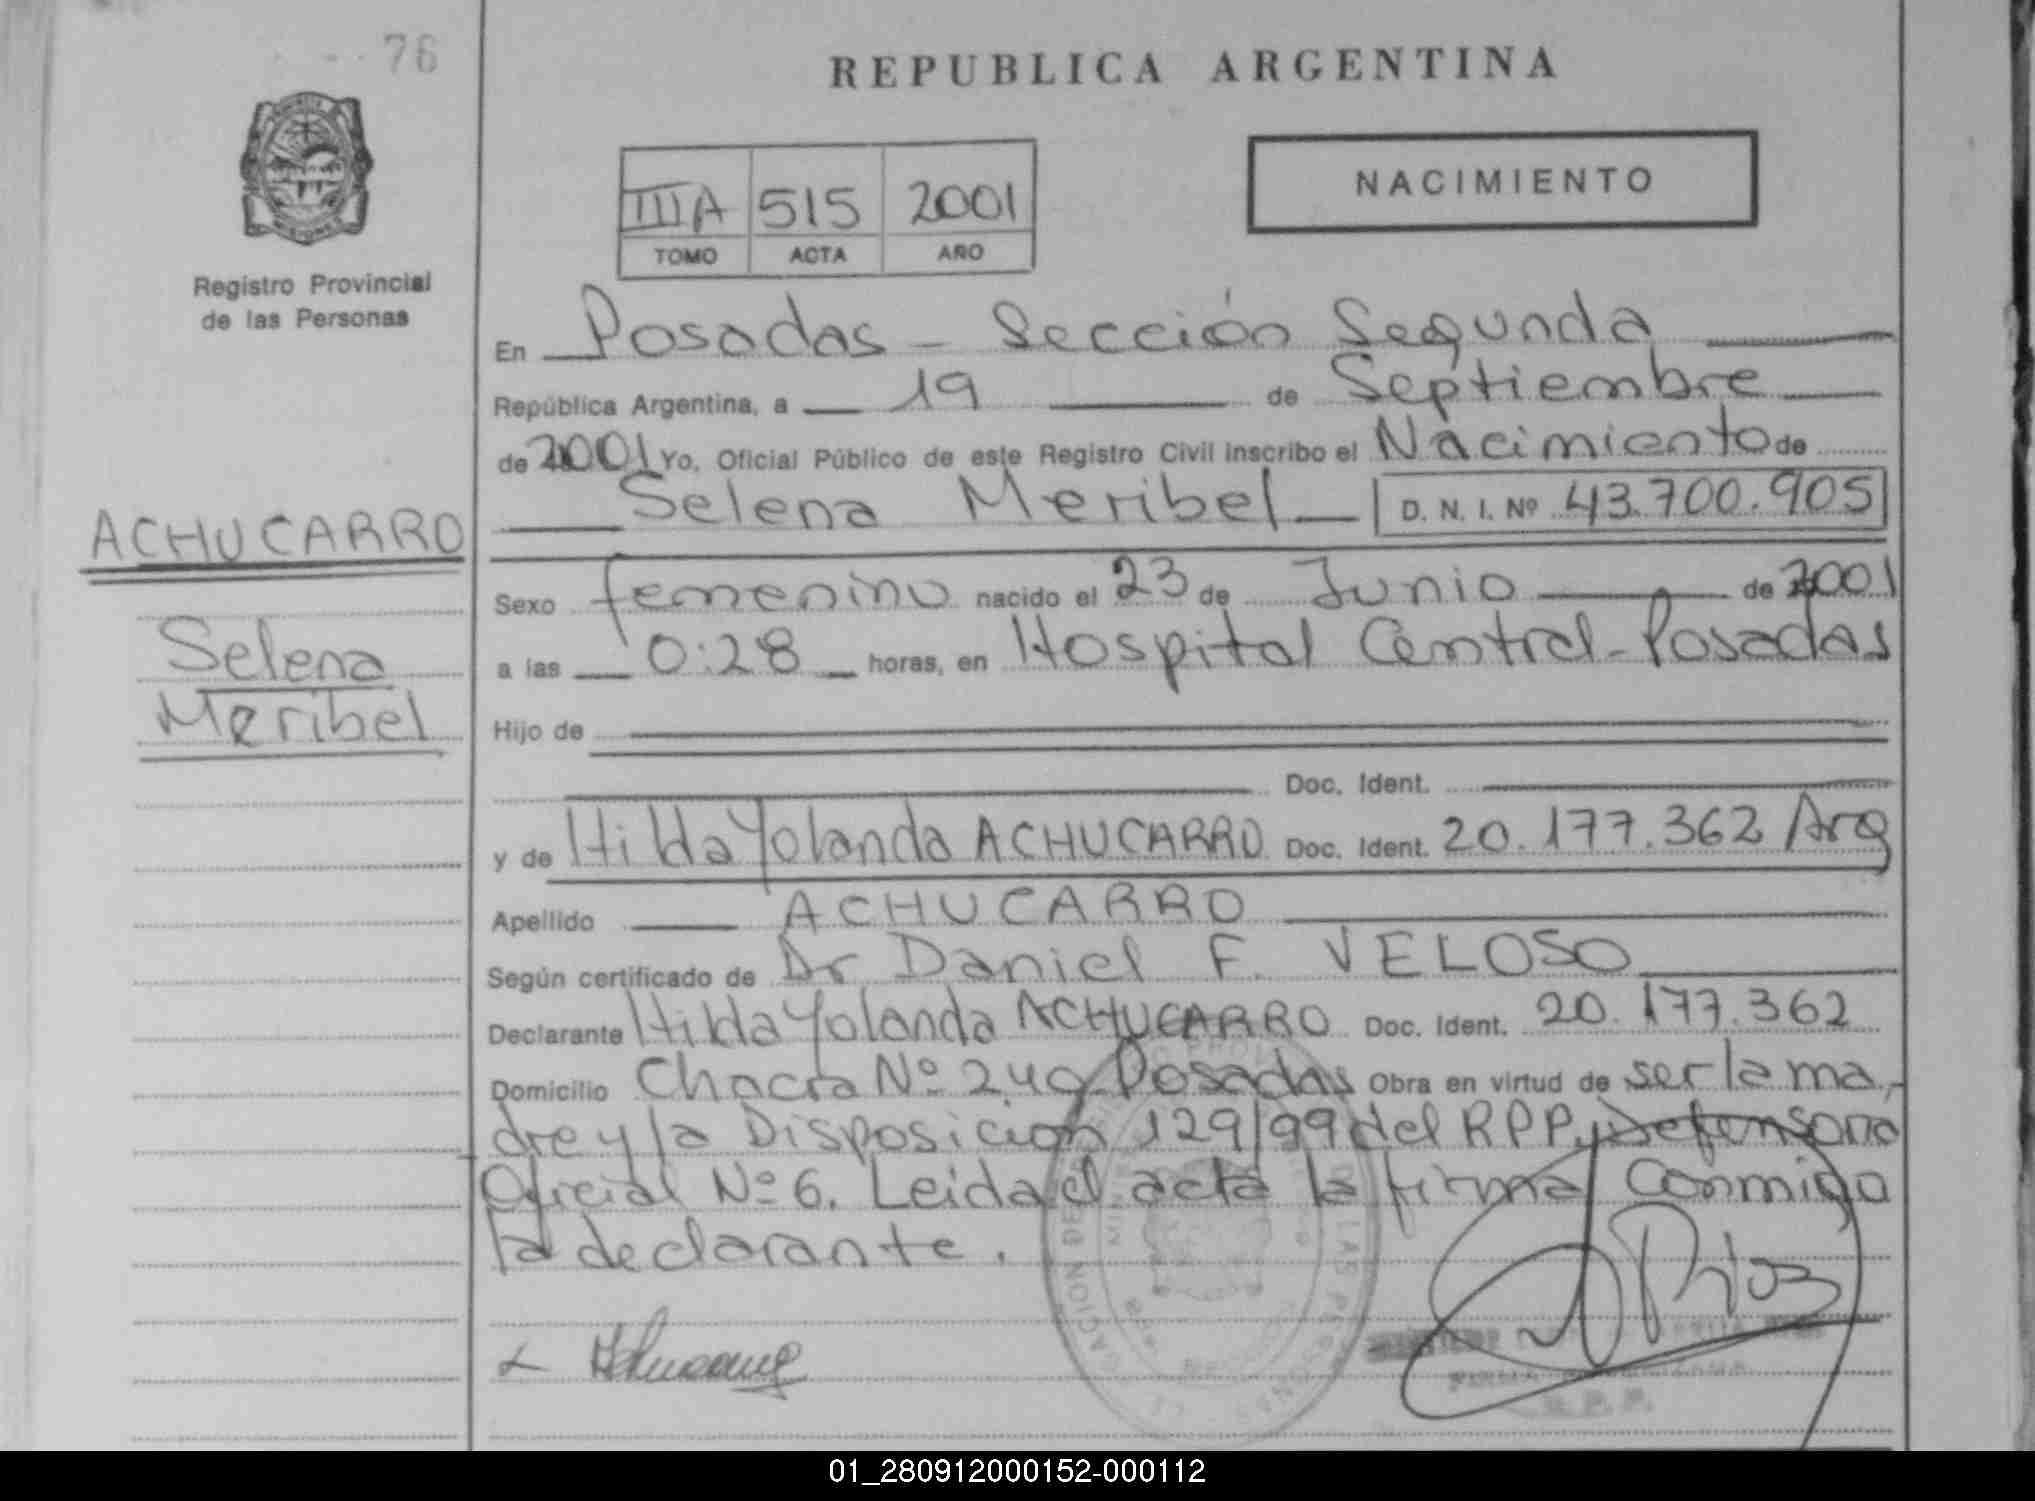 76
REPUBLICA ARGENTINA
NACIMIENTO
IIIA 515 2001
TOMO ACTA AÑO
MISIONES
Registro Provincial
de las Personas
En Posadas - Sección Segunda
República Argentina, a 19 de Septiembre
de 2001 Yo, Oficial Público de este Registro Civil inscribo el Nacimiento de
Selena Meribel D. N. I. Nº 43.700.905
ACHUCARRO
Selena
Meribel
Sexo femenino nacido el 23 de Junio de 2001
a las 0:28 horas, en Hospital Central-Posadas
Hijo de
Doc. Ident.
y de Hilda Yolanda ACHUCARRO Doc. Ident. 20.177.362 Arg
Apellido ACHUCARRO
Según certificado de Dr Daniel F. VELOSO
Declarante Hilda Yolanda ACHUCARRO Doc. Ident. 20.177.362
Domicilio Chacra Nº 249 Posadas Obra en virtud de ser la ma-
dre y la Disposicion 129/99 del RPP, y Defensoria
Oficial Nº 6. Leida el acta la firma conmigo
la declarante.
01_280912000152-000112